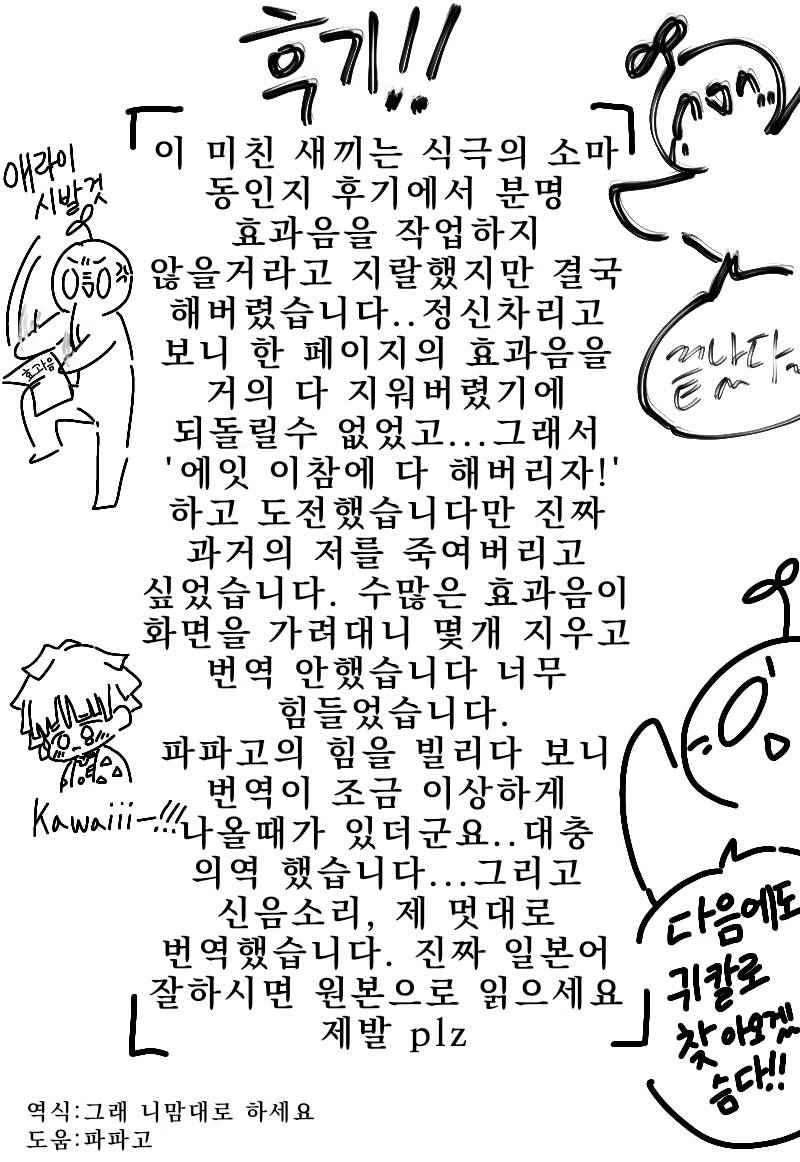 후기!!
이 미친 새끼는 식극의 소마
동인지 후기에서 분명
효과음을 작업하지
않을거라고 지랄했지만 결국
해버렸습니다..정신차리고
보니 한 페이지의 효과음을
거의 다 지워버렸기에
되돌릴수 없었고...그래서
'에잇 이참에 다 해버리자!'
하고 도전했습니다만 진짜
과거의 저를 죽여버리고
싶었습니다. 수많은 효과음이
화면을 가려대니 몇개 지우고
번역 안했습니다 너무
힘들었습니다.
파파고의 힘을 빌리다 보니
번역이 조금 이상하게
나올때가 있더군요..대충
의역 했습니다...그리고
신음소리, 제 멋대로
번역했습니다. 진짜 일본어
잘하시면 원본으로 읽으세요
제발 plz
애라이
시발것
효과음
Kawaiii-!!!
끝났다..
다음에도
귀칼로
찾아오겠
슴다!!
역식:그래 니맘대로 하세요
도움:파파고